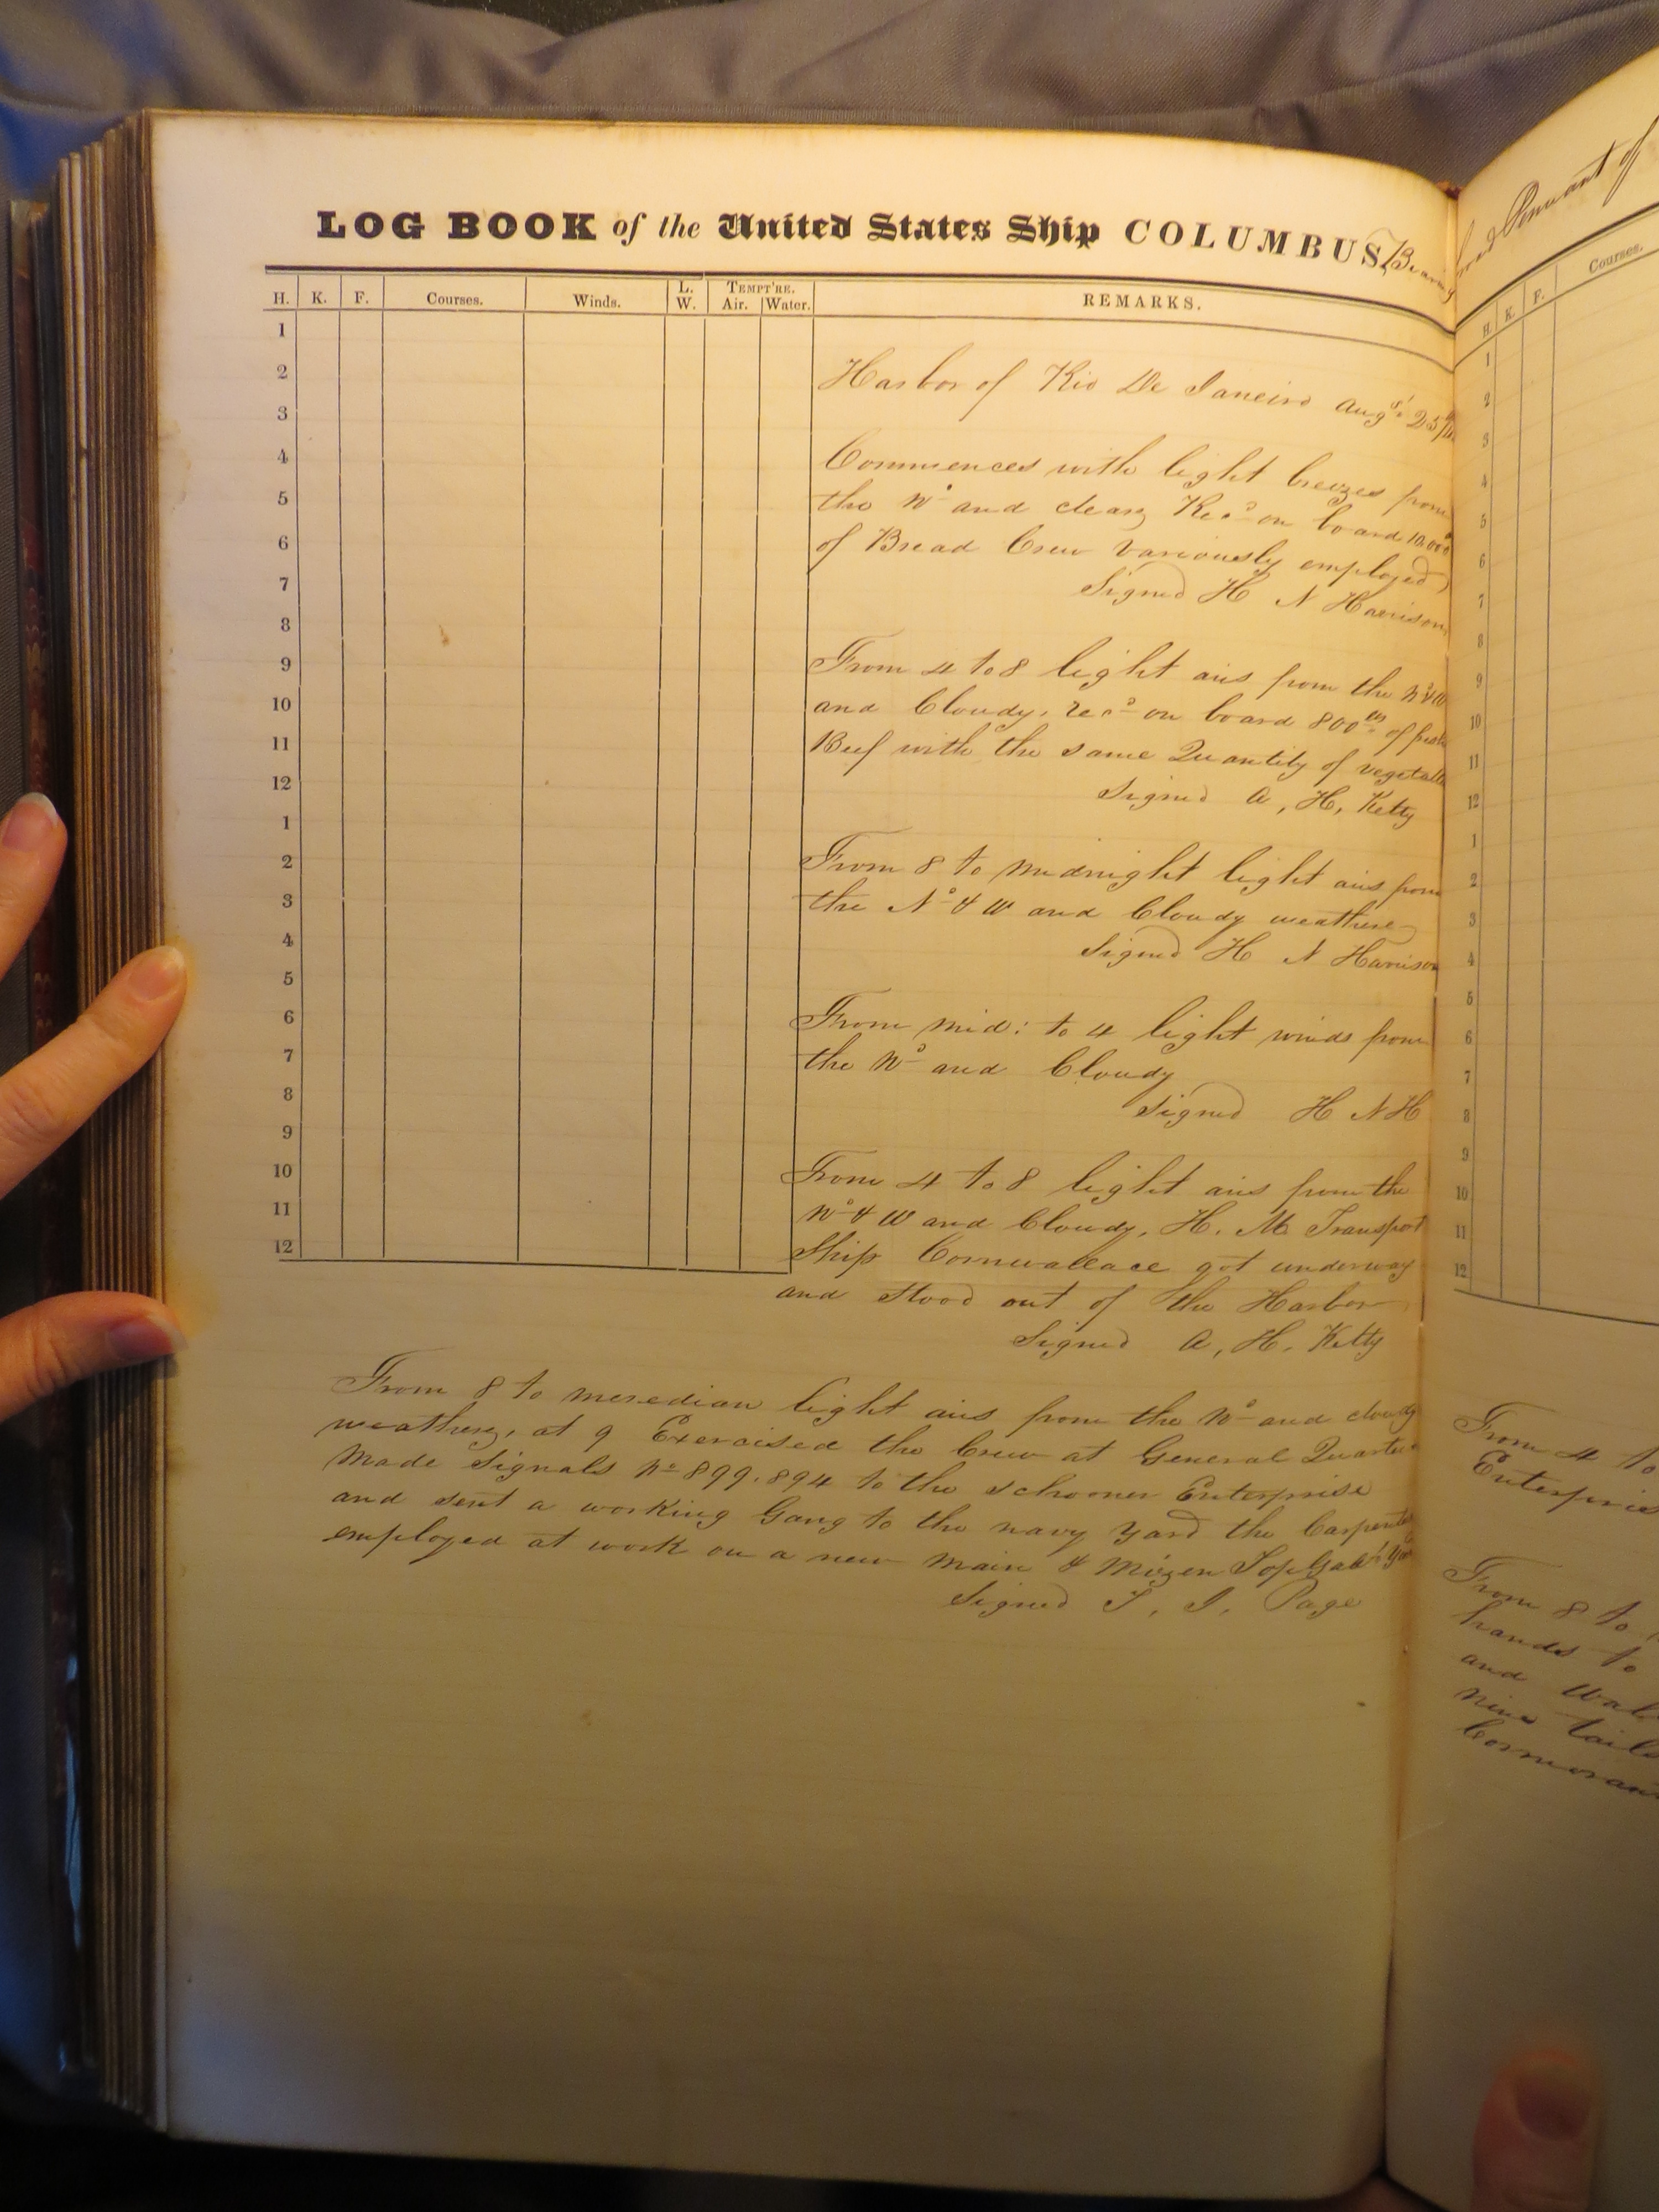 LOG BOOK of the United States Ship COLUMBUS, Bearing
H. K. F. Courses. Winds. L. W. TEMPT'RE. Air. Water. REMARKS.
1
2
3
4
5
6
7
8
9
10
11
12
1
2
3
4
5
6
7
8
9
10
11
12
Harbor of Rio De Janeiro Augst 25th
Commences with light breezes from
the No and clear, Recd on board 10.000
of Bread Crew variously employed
Signed H N Harrison
From 4 to 8 light airs from the No & W
and Cloudy, recd on board 800 lbs of fresh
Beef with the same Quantity of vegetable
Signed A, H, Kelty
From 8 to Midnight light airs from
the No & W and Cloudy weather
Signed H N Harrison
From mid: to 4 light winds from
the No and Cloudy
Signed H N H
From 4 to 8 light airs from the
No & W and Cloudy, H. M. Transport
Ship Cornwallace got underway
and stood out of the Harbor
Signed A, H. Kelty
From 8 to meredian light airs from the No and cloudy
weather, at 9 Exercised the Crew at General Quarters
Made Signals No 899.894 to the schooner Enterprise
and sent a working Gang to the navy Yard the Carpenters
employed at work on a new Main & Mizen TopGalt
Signed T. J. Page
Pennant of
H. K. F. Courses.
1
2
3
4
5
6
7
8
9
10
11
12
1
2
3
4
5
6
7
8
9
10
11
12
From 4 to
Enterprise
From 8 to
hands to
and
nine tails
Cormorant